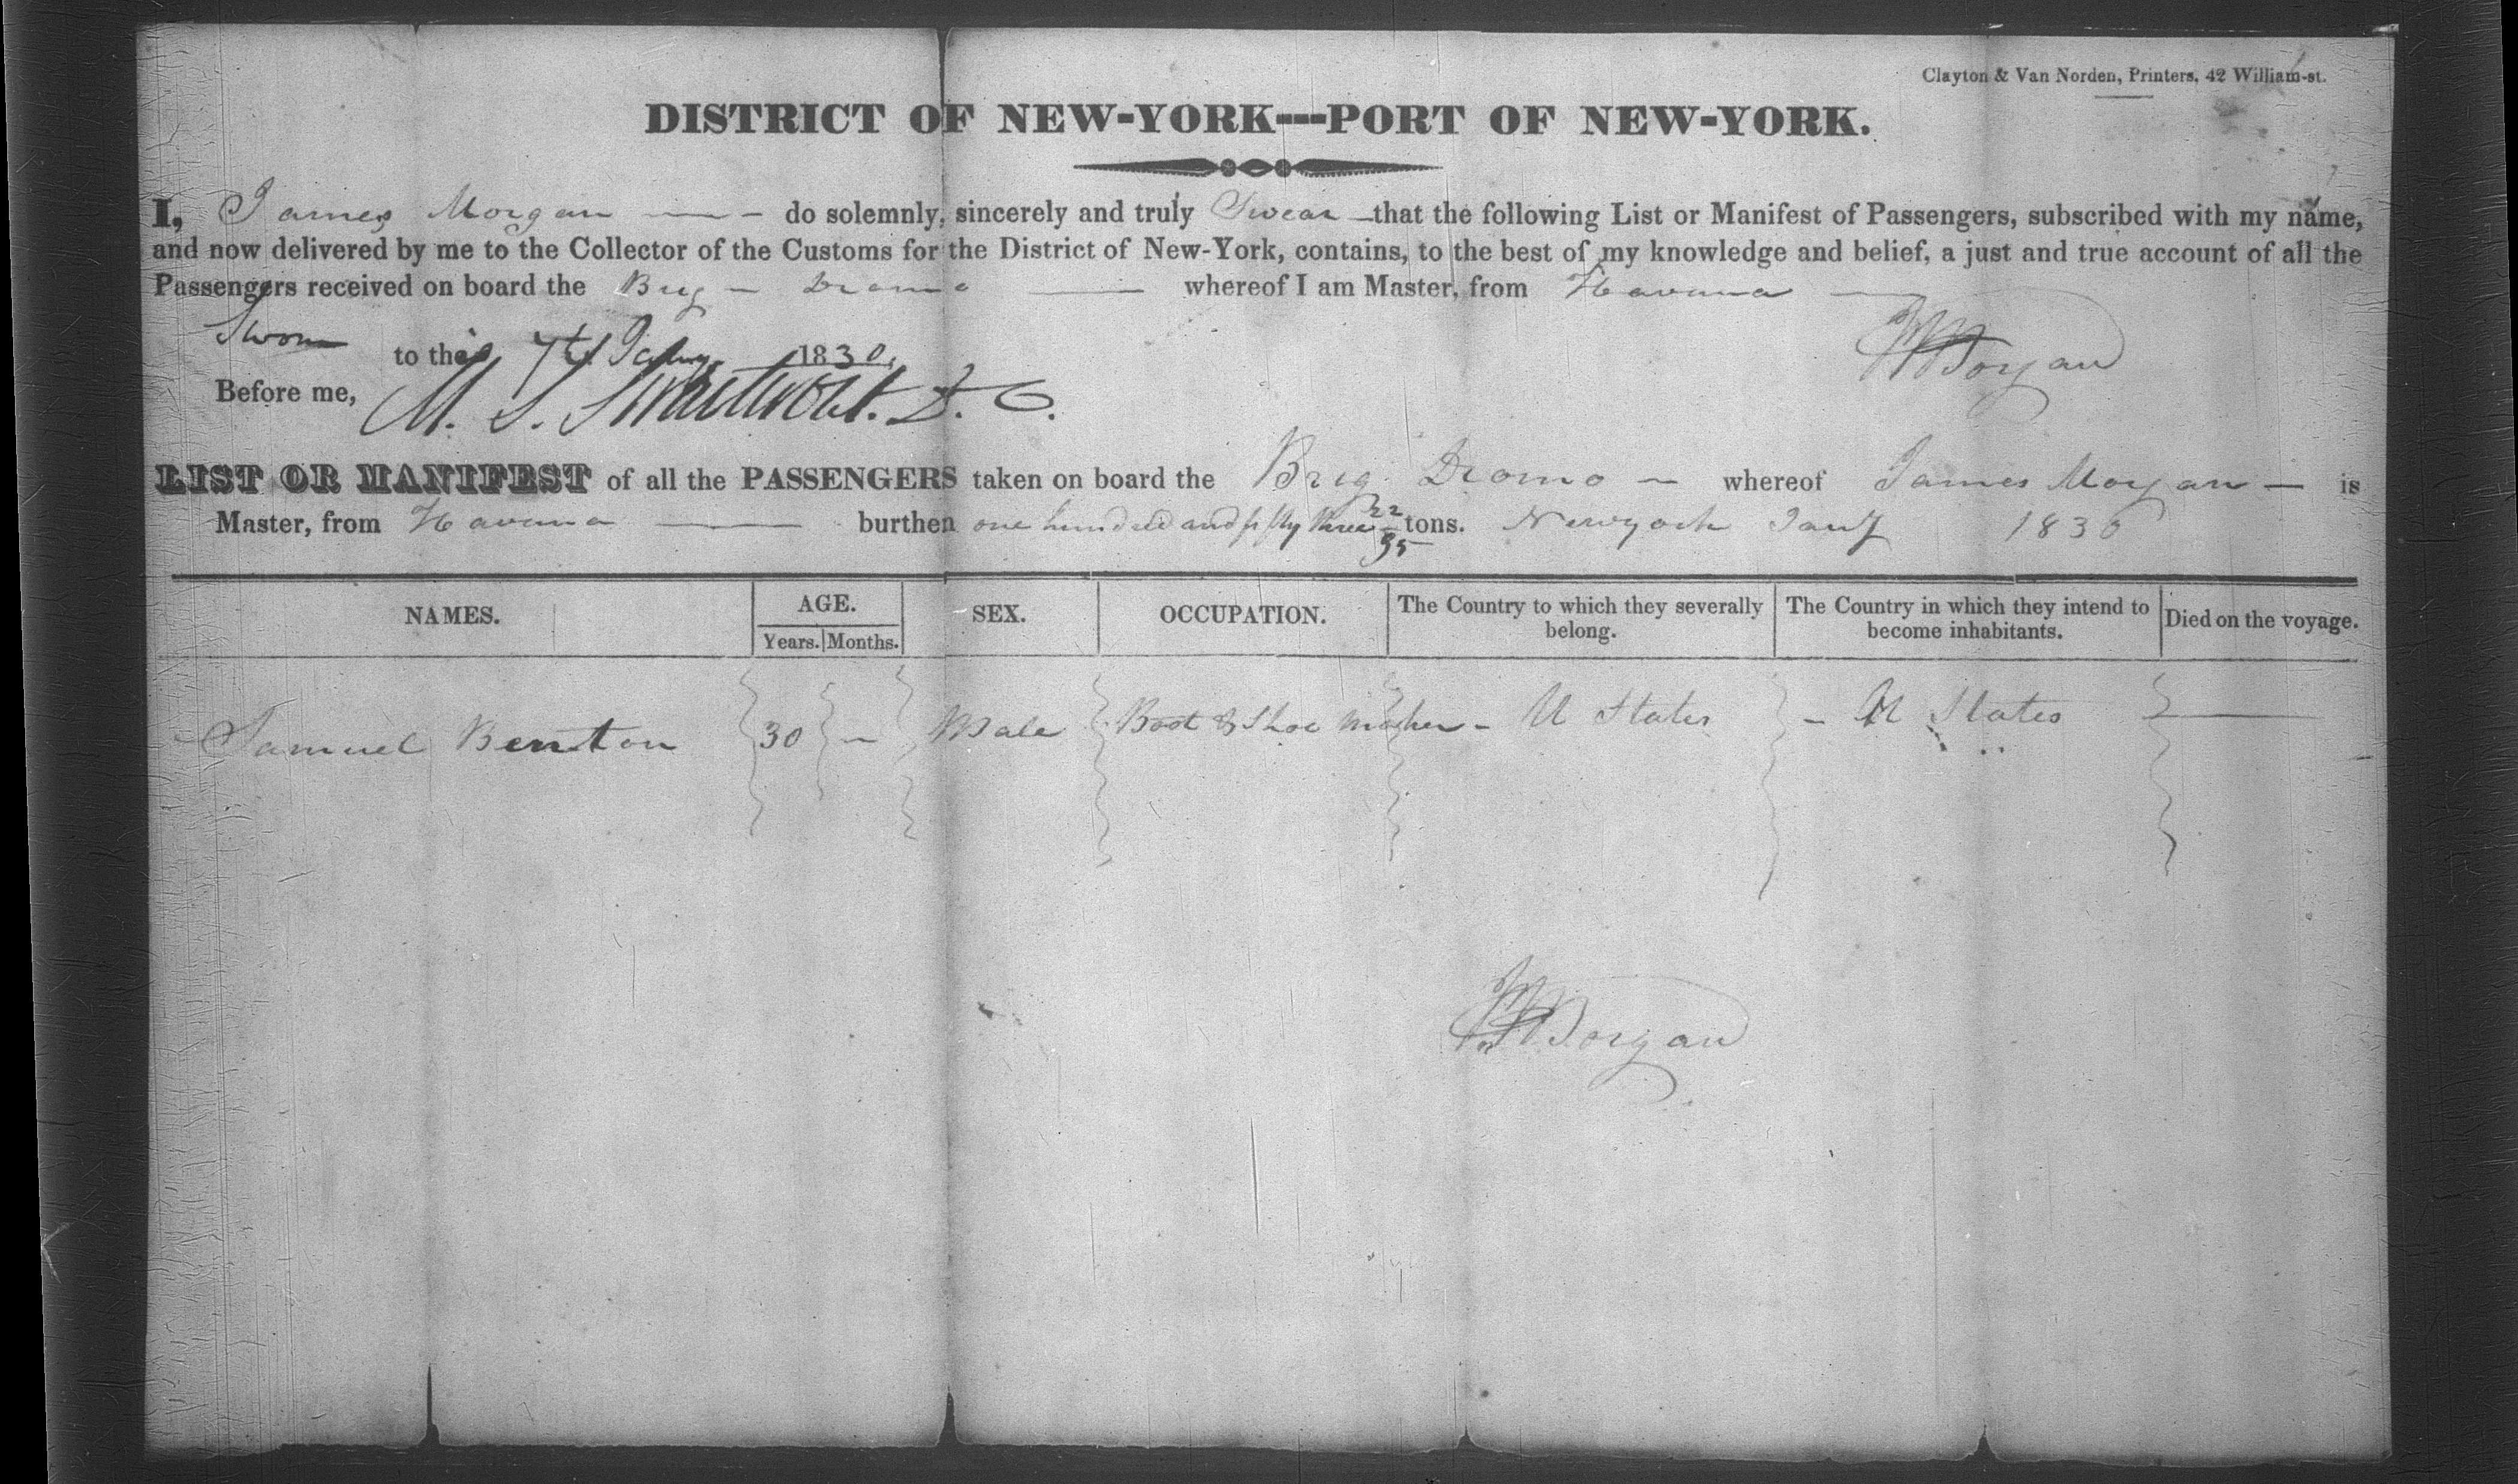 Clayton & Van Norden, Printers, 42 William-st.
DISTRICT OF NEW-YORK---PORT OF NEW-YORK.
I, James Morgan do solemnly, sincerely and truly Swear that the following List or Manifest of Passengers, subscribed with my name,
and now delivered by me to the Collector of the Customs for the District of New-York, contains, to the best of my knowledge and belief, a just and true account of all the
Passengers received on board the Brig Dromo whereof I am Master, from Havana
Sworn to the 7th Jany 1830,
Morgan
Before me, M. S. Swartwout. D. C.
LIST OR MANIFEST of all the PASSENGERS taken on board the Brig Dromo whereof James Morgan is
Master, from Havana burthen one hundred and fifty three 22/95 tons. Newyork Jany 1830
NAMES. AGE. SEX. OCCUPATION. The Country to which they severally belong. The Country in which they intend to become inhabitants. Died on the voyage.
Years. Months.
Samuel Benton 30 – Male Boot & Shoe maker – U States – U States —
Morgan